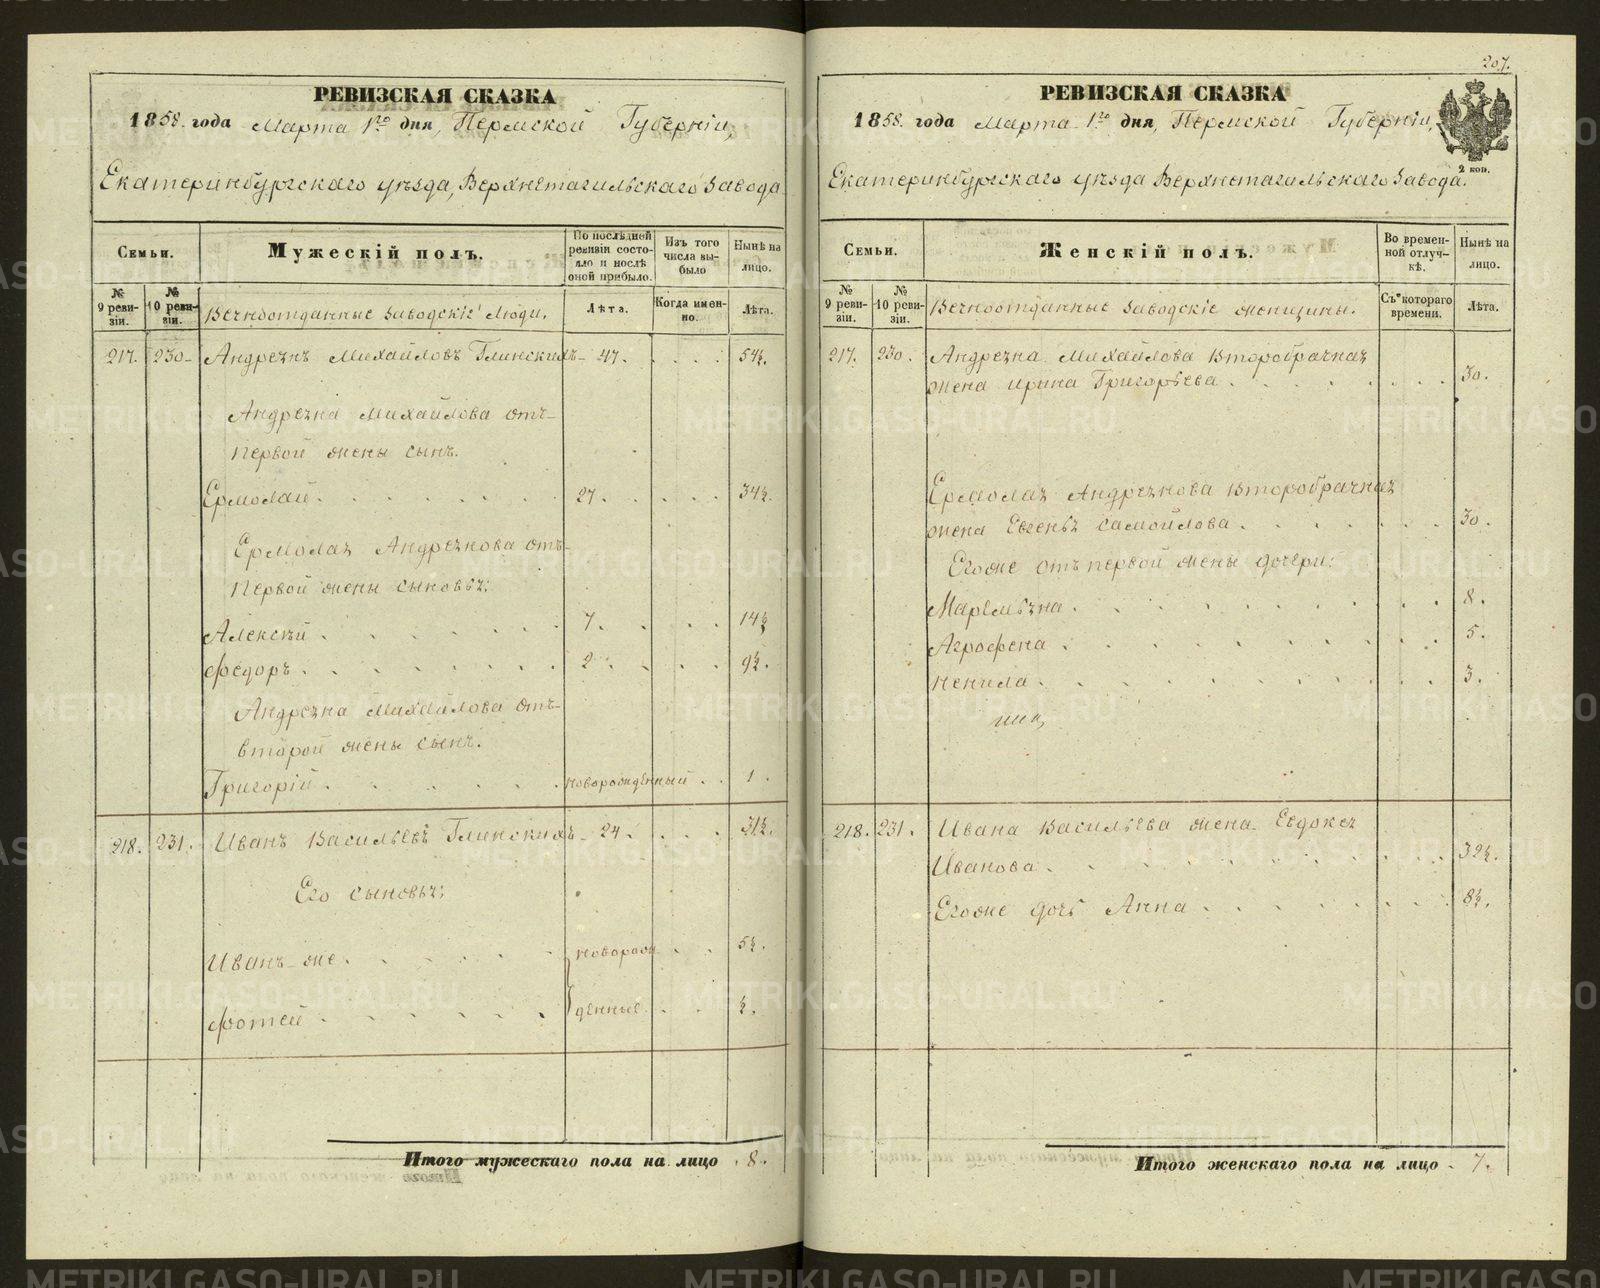 РЕВИЗСКАЯ СКАЗКА
1858. года Марта 1го дня, Пермской Губерніи,
Екатеринбургскаго уѣзда, Верхнетагильскаго Завода
Семьи.
№ 9 ревизіи.
№ 10 ревизіи.
Мужескій полъ.
Вечноотданные Заводскіе Люди.
По последней ревизіи состояло и послѣ оной прибыло.
Лѣта.
Изъ того числа выбыло
Когда именно.
Нынѣ на лицо.
Лѣта.
217. 230. Андреянъ Михайловъ Глинскихъ 47. 54½.
Андреяна Михайлова отъ
первой жены сынъ.
Ермолай 27. 34½.
Ермолая Андреянова отъ
первой жены сыновья:
Алексѣй 7. 14½
Федоръ 2. 9½.
Андреяна Михайлова отъ
второй жены сынъ.
Григорій новорожденный 1.
218. 231. Иванъ Васильевъ Глинскихъ 24. 31½.
Его сыновья:
Иванъ же новорож 5½.
Фотей денные ½.
Итого мужескаго пола на лицо 8.
207.
РЕВИЗСКАЯ СКАЗКА
1858. года Марта 1го дня, Пермской Губерніи,
Екатеринбургскаго уѣзда Верхнетагильскаго Завода.
2 коп.
Семьи.
№ 9 ревизіи.
№ 10 ревизіи.
Женскій полъ.
Вечноотданные Заводскіе женщины.
Во временной отлучкѣ.
Съ котораго времени.
Нынѣ на лицо.
Лѣта.
217. 230. Андреяна Михайлова второбрачная
жена Ирина Григорьева 30.
Ермолая Андреянова второбрачная
жена Евгенья Самойлова 30.
Егоже отъ первой жены дочери:
Маремьяна 8.
Агрофена 5.
Ненила 3.
218. 231. Ивана Васильева жена Евдокея
Иванова 32½.
Егоже дочь Анна 8½.
Итого женскаго пола на лицо 7.
METRIKI.GASO-URAL.RU